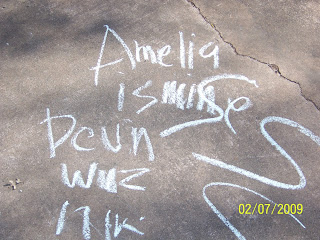 Amelia
is mine
Devin
wuz
02/07/2009